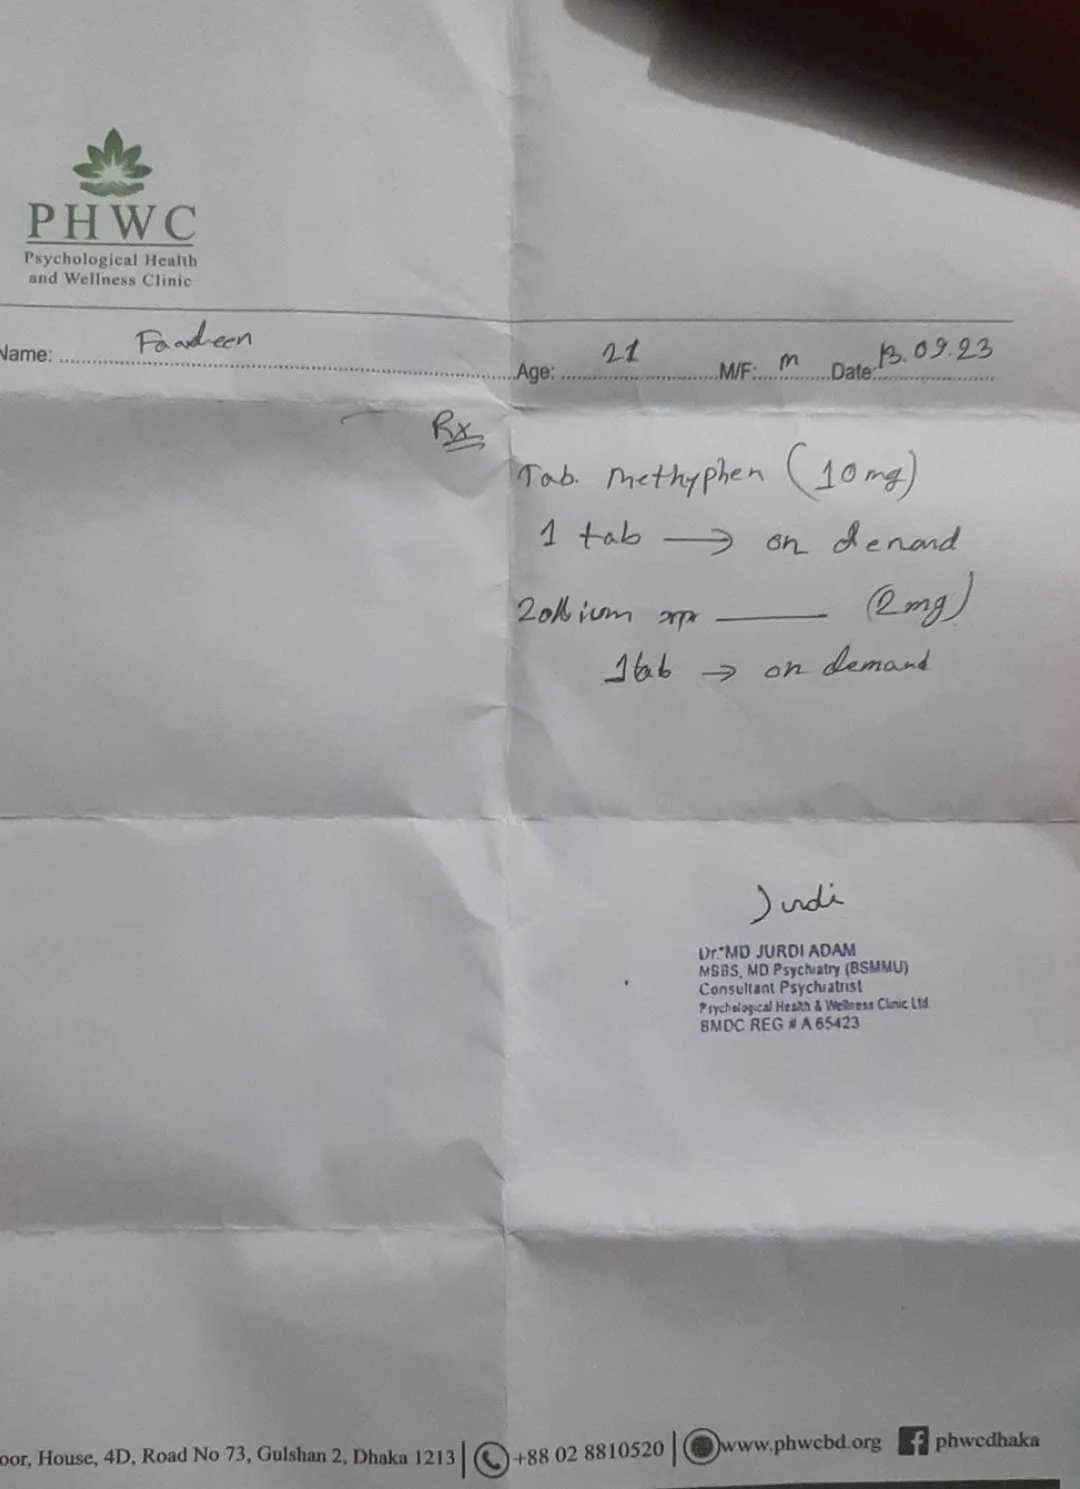 PHWC
Psychological Health
and Wellness Clinic
Name: Faardeen Age: 21 M/F: m Date: 13.09.23
Rx
Tab. Methyphen (10 mg)
1 tab → on demand
Zolium (2 mg)
1 tab → on demand
Jurdi
Dr. MD JURDI ADAM
MBBS, MD Psychiatry (BSMMU)
Consultant Psychiatrist
Psychological Health & Wellness Clinic Ltd.
BMDC REG # A 65423
oor, House, 4D, Road No 73, Gulshan 2, Dhaka 1213 | +88 02 8810520 | www.phwcbd.org phwcdhaka